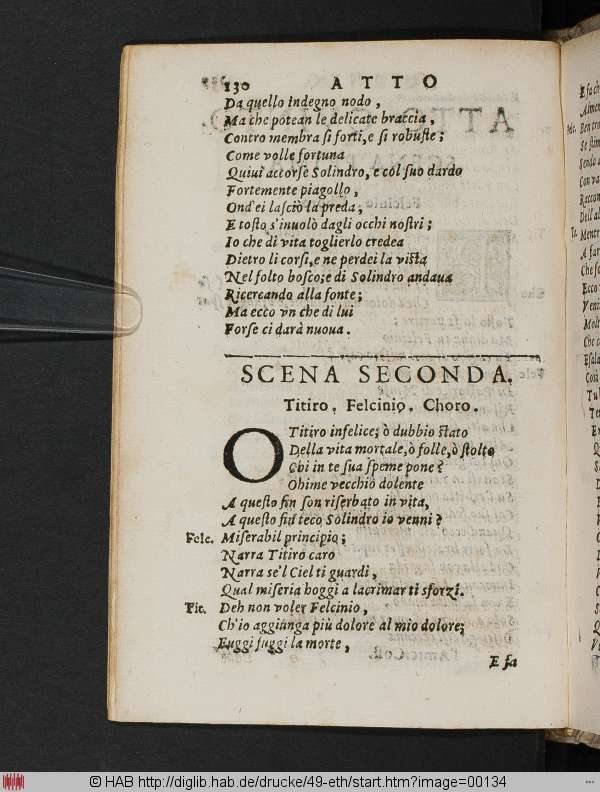 130 ATTO
Da quello indegno nodo,
Ma che potean le delicate braccia,
Contro membra si forti, e si robuste;
Come volle fortuna
Quiui accorse Solindro, e col suo dardo
Fortemente piagollo,
Ond'ei lasciò la preda;
E tosto s'inuolò dagli occhi nostri;
Io che di vita toglierlo credea
Dietro li corsi, e ne perdei la vista
Nel folto bosco; e di Solindro andaua
Ricercando alla fonte;
Ma ecco vn che di lui
Forse ci darà nuoua.
SCENA SECONDA.
Titiro. Felcinio. Choro.
O Titiro infelice; ò dubbio stato
Della vita mortale, ò folle, ò stolto
Chi in te sua speme pone?
Ohime vecchio dolente
A questo fin son riserbato in vita,
A questo fin teco Solindro io venni?
Felc. Miserabil principio;
Narra Titiro caro
Narra se'l Ciel ti guardi,
Qual miseria hoggi a lacrimar ti sforzi.
Tit. Deh non voler Felcinio,
Ch'io aggiunga più dolore al mio dolore;
Fuggi fuggi la morte,
E sa
© HAB http://diglib.hab.de/drucke/49-eth/start.htm?image=00134